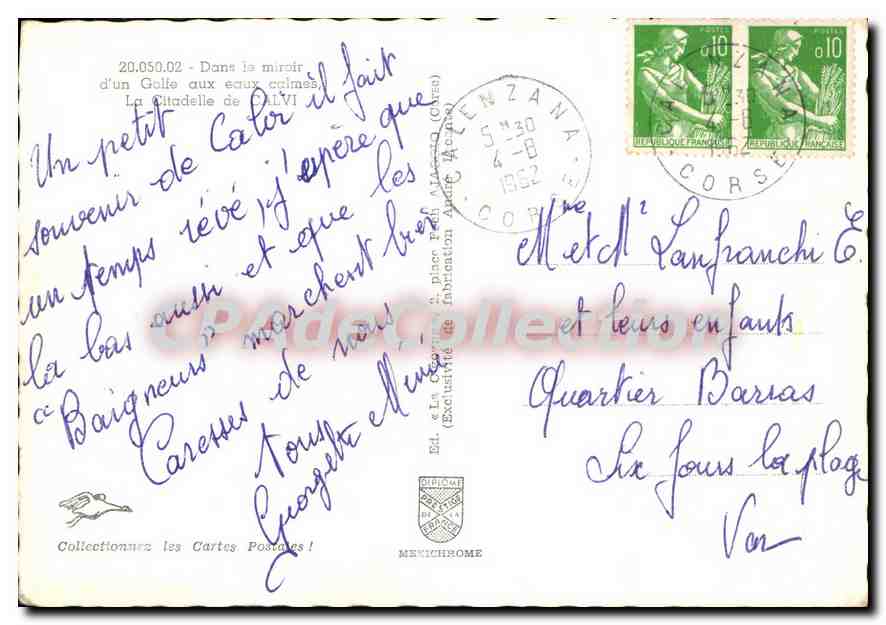 20.050.02 - Dans le miroir
d'un Golfe aux eaux calmes,
La Citadelle de CALVI
Un petit
souvenir de Calvi il fait
un temps rêvé, j'espère que
la bas aussi et que les
"Baigneurs" marchent bien
Caresses de nous
tous
Georgette Mimi
Collectionnez les Cartes Postales !
Ed. « La , 2, place Foch AJACCIO (CORSE)
(Exclusivité de fabrication André )
DIPLOME
PRESTIGE
DE LA
FRANCE
MEXICHROME
CALENZANA
5 H 30
4-8
1962
CORSE
POSTES
0,10
REPUBLIQUE FRANÇAISE
POSTES
0,10
REPUBLIQUE FRANÇAISE
CALENZANA
5 H 30
4-8
1962
CORSE
Mme et Mr Lanfranchi E.
et leurs enfants
Quartier Barras
Six Fours la plage
Var
CPAdeCollection